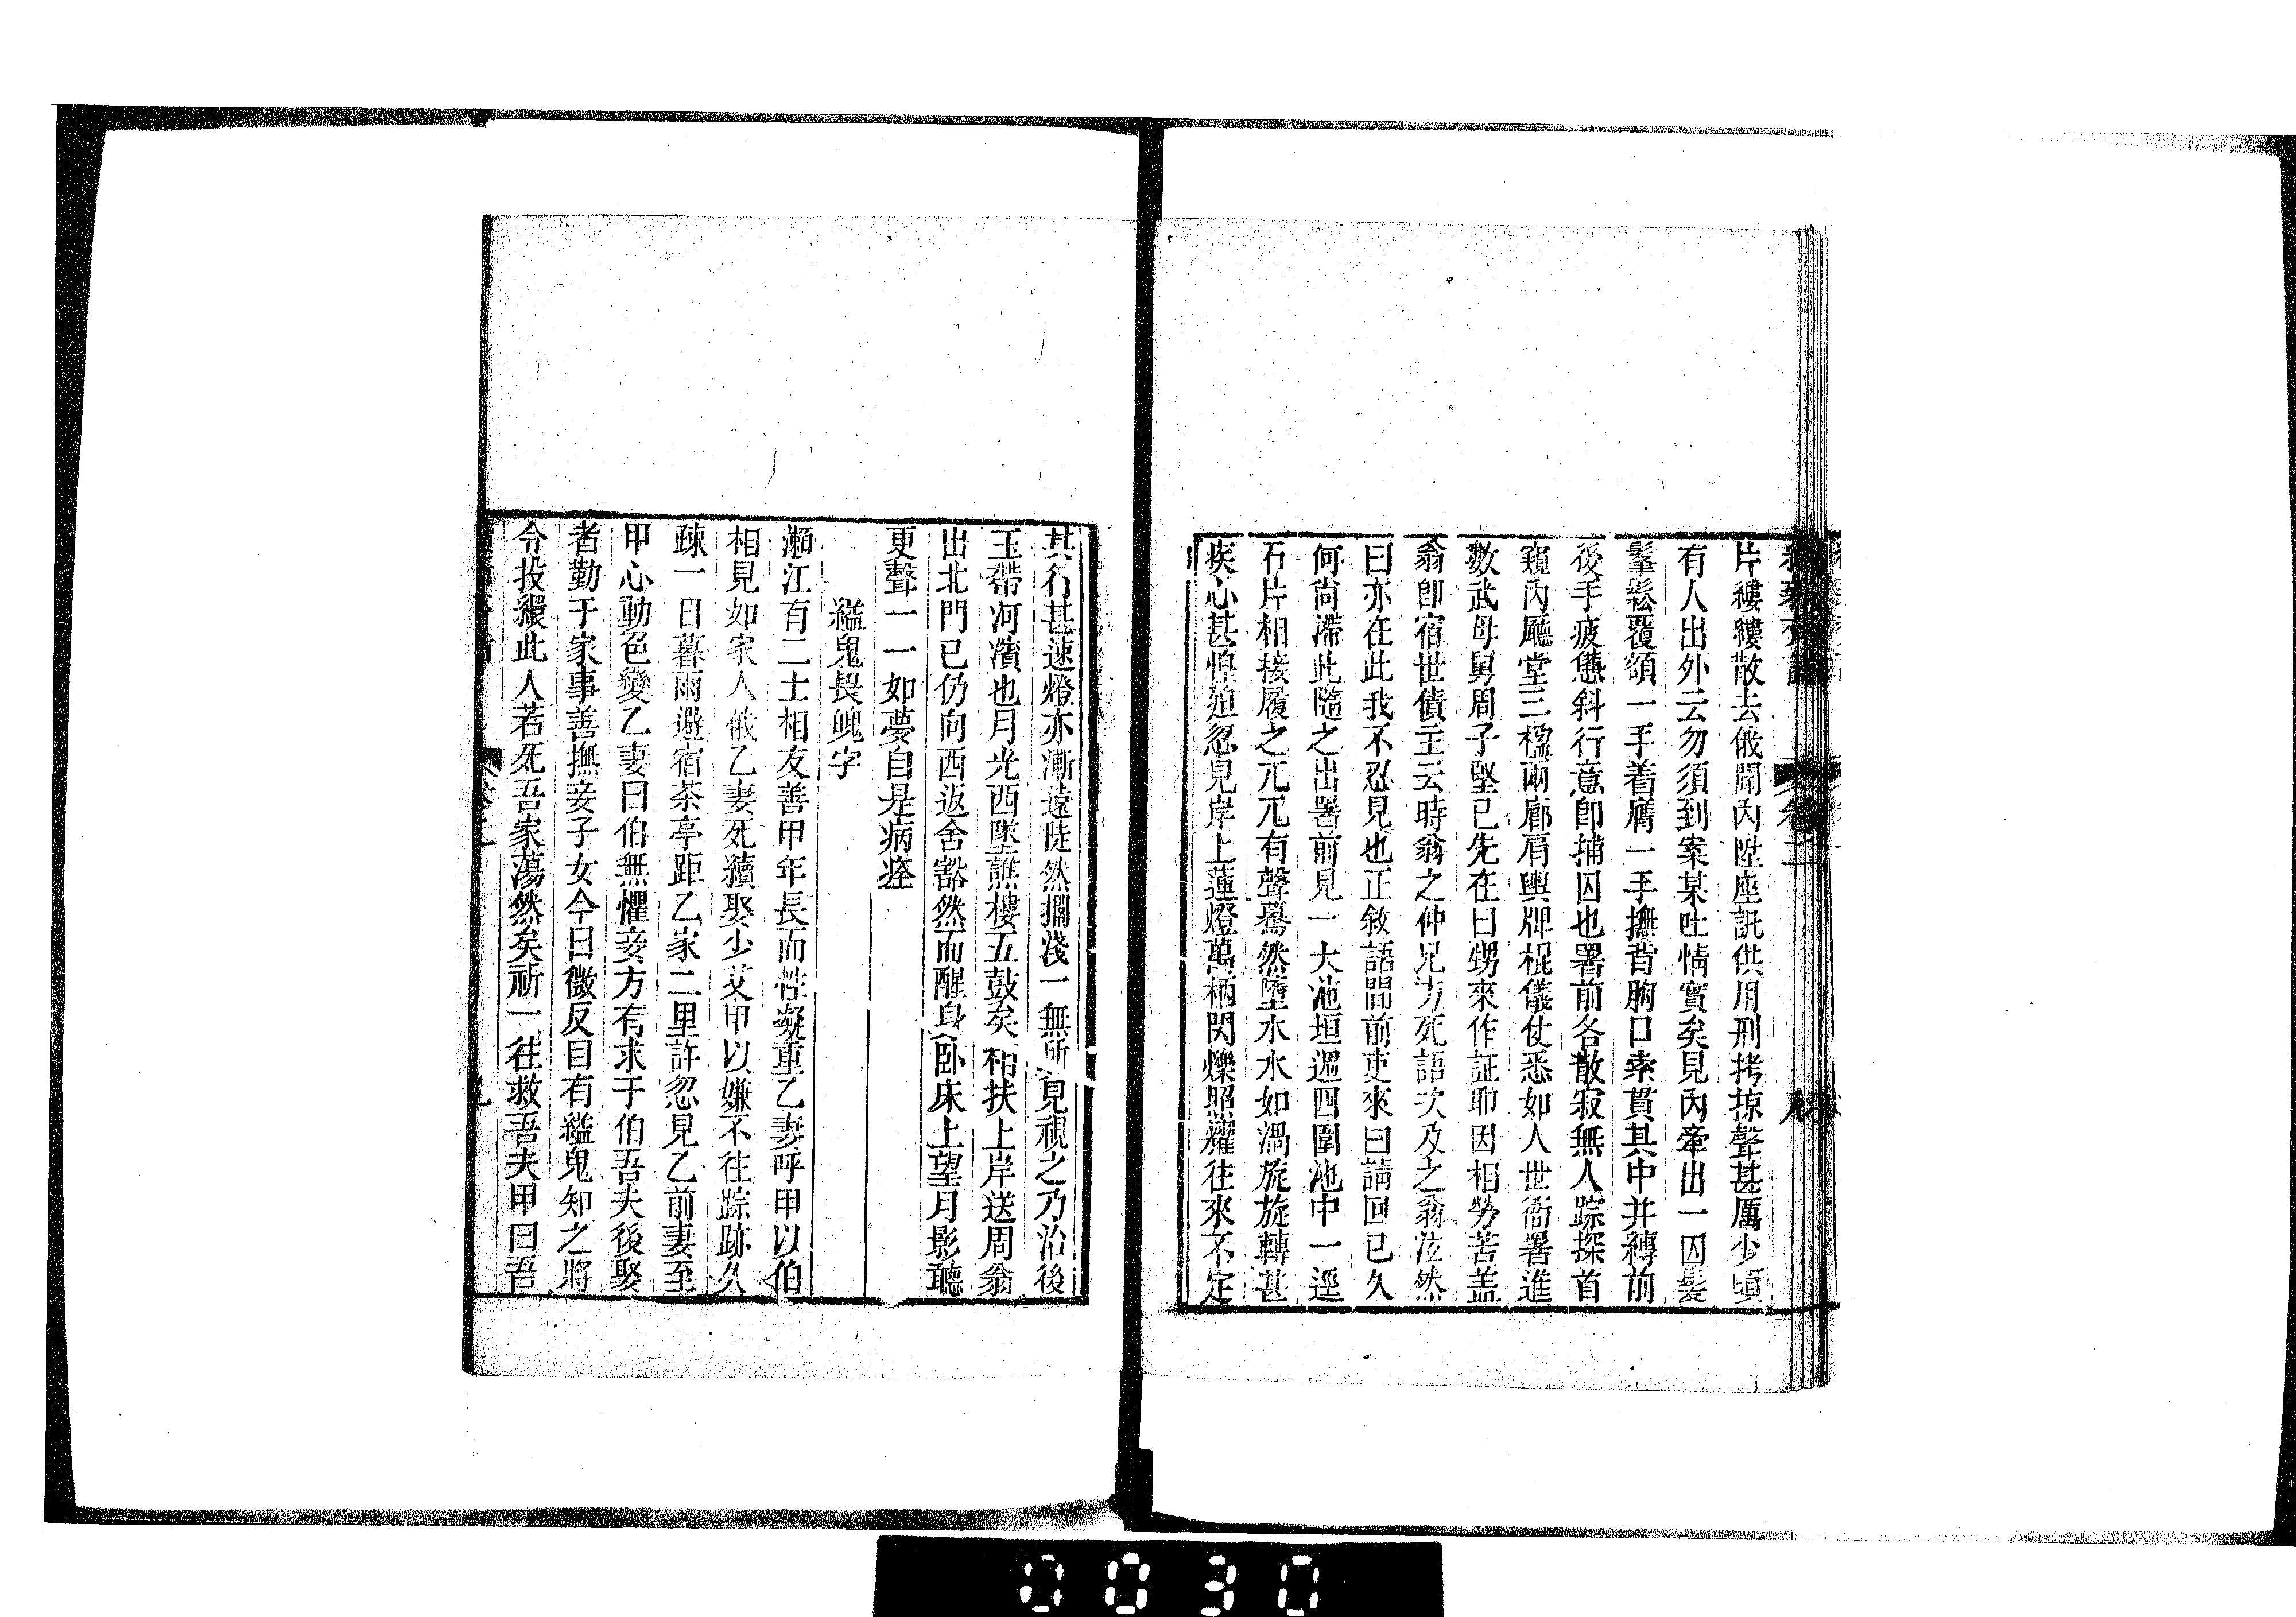 片縷縷散去俄聞內陞座訊供用刑拷掠聲甚厲少頃
有人出外云勿須到案某吐情實矣見內牽出一囚髮
鬔鬆覆額一手着膺一手撫背胸口索貫其中并縛前
後手疲憊斜行意卽捕囚也署前各散寂無人踪探首
窺內廳堂三楹兩廊肩輿牌棍儀仗悉如人世衙署進
數武母舅周子堅已先在曰甥來作証耶因相勞苦盖
翁卽宿世債主云時翁之仲兄方死語次及之翁泫然
曰亦在此我不忍見也正敘語間前吏來曰請回已久
何尙滯此隨之出署前見一大池垣遶四圍池中一逕
石片相接履之兀兀有聲驀然墮水水如渦旋旋轉甚
疾心甚惶廹忽見岸上蓮燈萬柄閃爍照耀往來不定
其行甚速燈亦漸遠陡然擱淺一無所見視之乃治後
玉帶河濱也月光西墜譙樓五鼓矣相扶上岸送周翁
出北門已仍向西返舍豁然而醒身臥床上望月影聽
更聲一一如夢自是病痊
縊鬼畏魄字
瀨江有二士相友善甲年長而性凝重乙妻呼甲以伯
相見如家人俄乙妻死續娶少艾甲以嫌不往踪跡久
疎一日暮雨避宿茶亭距乙家二里許忽見乙前妻至
甲心動色變乙妻曰伯無懼妾方有求于伯吾夫後娶
者勤于家事善撫妾子女今日微反目有縊鬼知之將
令投繯此人若死吾家蕩然矣祈一往救吾夫甲曰吾
0030